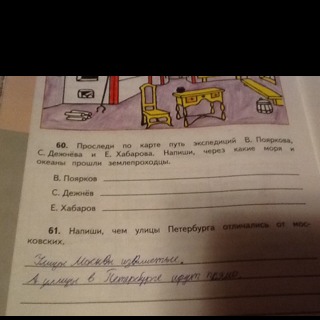 60. Проследи по карте путь экспедиций В. Пояркова,
С. Дежнёва и Е. Хабарова. Напиши, через какие моря и
океаны прошли землепроходцы.
В. Поярков
С. Дежнёв
Е. Хабаров
61. Напиши, чем улицы Петербурга отличались от мос-
ковских.
Улицы Москвы извилистые,
А улицы в Петербурге идут прямо